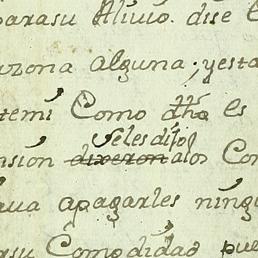 parasu Alivio. dise
azona alguna; yesta
temi Como dha es
Seles dijo
nsion dixeron alos Con
ava apagarles ningu
asu Comodidad pue